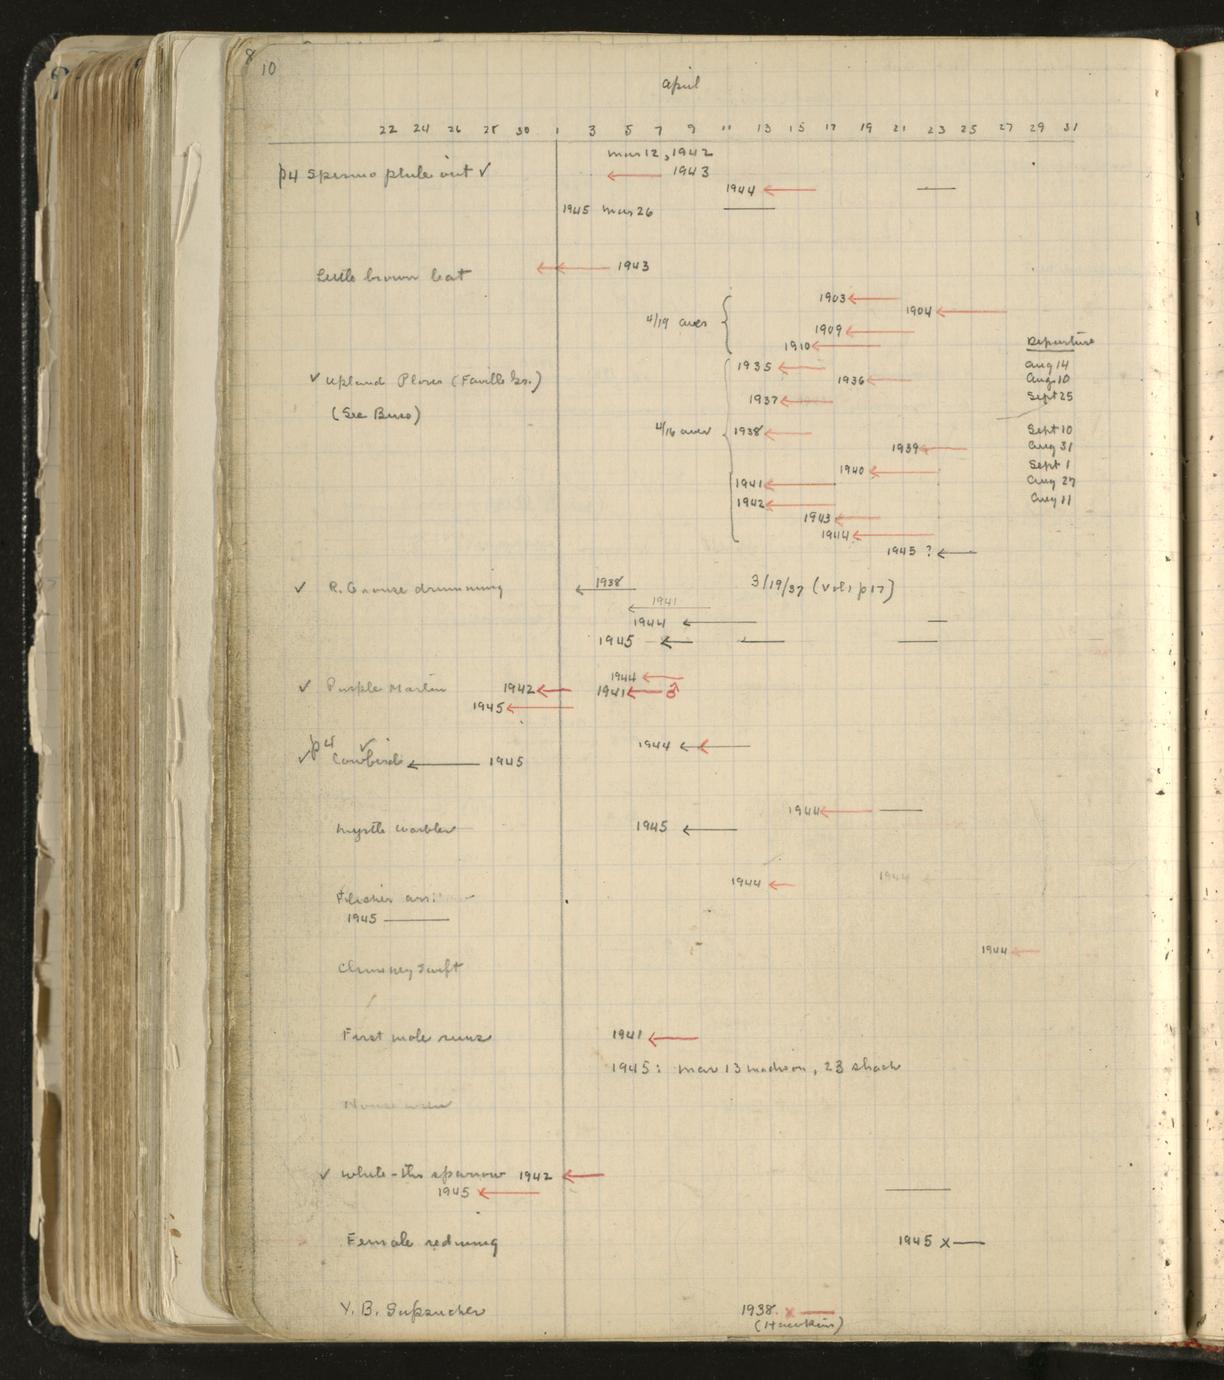 8
10
April
22 24 26 28 30 1 3 5 7 9 11 13 15 17 19 21 23 25 27 29 31
Mar 12, 1942
p4 Spermophile out ✓ 1943
1944
1945 Mar 26
Little brown bat 1943
1903
1904
4/19 aver
1909
1910
Departure
1935 Aug 14
✓ Upland Plover (Faville Gr.) 1936 Aug. 10
1937 Sept 25
(See Buss)
4/16 aver 1938 Sept 10
1939 Aug 31
1940 Sept 1
1941 Aug 27
1942 Aug 11
1943
1944
1945 ?
✓ R. Grouse drumming 1938 3/19/37 (Vol 1 p17)
1941
1944
1945
1944
✓ Purple Martin 1942 1941 ♂
1945
p4 ✓
✓ Cowbirds 1945 1944
1944
Myrtle Warbler 1945
1944 1944
Flicker arr:
1945
1944
Chimney Swift
First mole runs 1941
1945: Mar 13 Madison, 23 shack
House wren
✓ White-thr sparrow 1942
1945
Female redwing 1945 x
Y. B. Sapsucker 1938. x
(Hawkins)